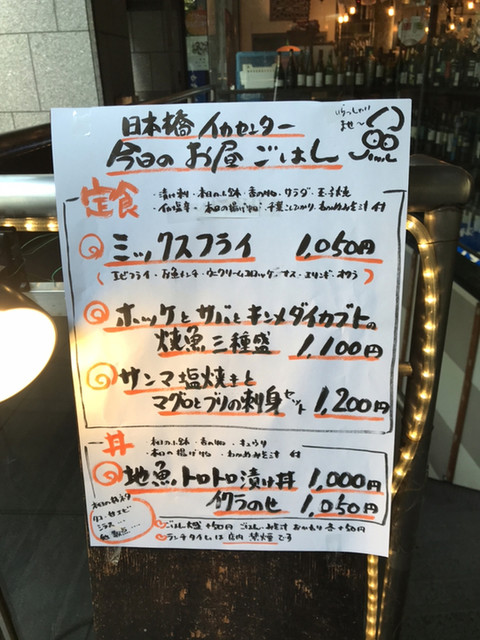 いらっしゃい
ませ〜
日本橋 イカセンター
今日の お昼 ごはん
定食
漬け刺・本日の小鉢・香の物・サラダ・玉子焼
・イカ塩辛・本日の揚げ物・千葉こしひかり・わかめみそ汁 付
ミックスフライ 1,050円
ホッケとサバとキンメダイカブトの
焼魚 三種盛 1,100円
サンマ塩焼きと
マグロとブリの刺身セット 1,200円
丼
本日の小鉢・香の物・キュウリ
本日の揚げ物・わかめみそ汁 付
地魚トロトロ漬け丼 1,000円
イクラのせ 1,050円
タコ・甘エビ
シラス...
ごはん大盛 +50円 ごはん・みそ汁 おかわり 各+50円
ランチタイムは 店内 禁煙です